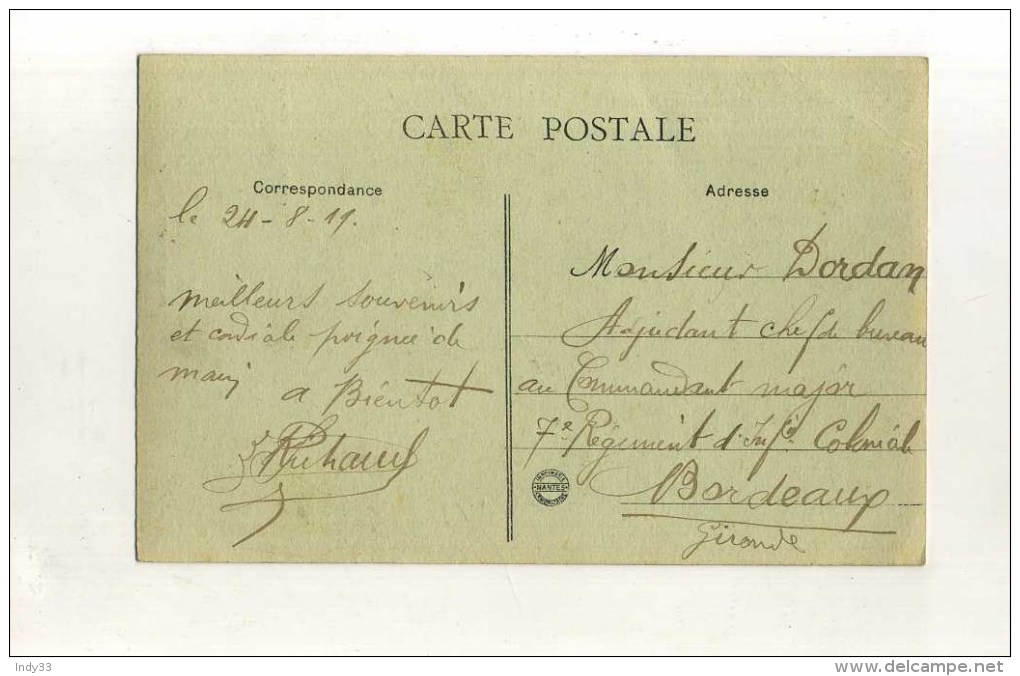 CARTE POSTALE
Correspondance
le 24-8-19.
meilleurs souvenirs
et cordiale poignée de
main
a Bientot
Adresse
Monsieur Dordan
Adjudant chef de bureau
au Commandant major
7e Régiment d'Inf ie Coloniale
Bordeaux
Gironde
NANTES
Indy33
www.delcampe.net